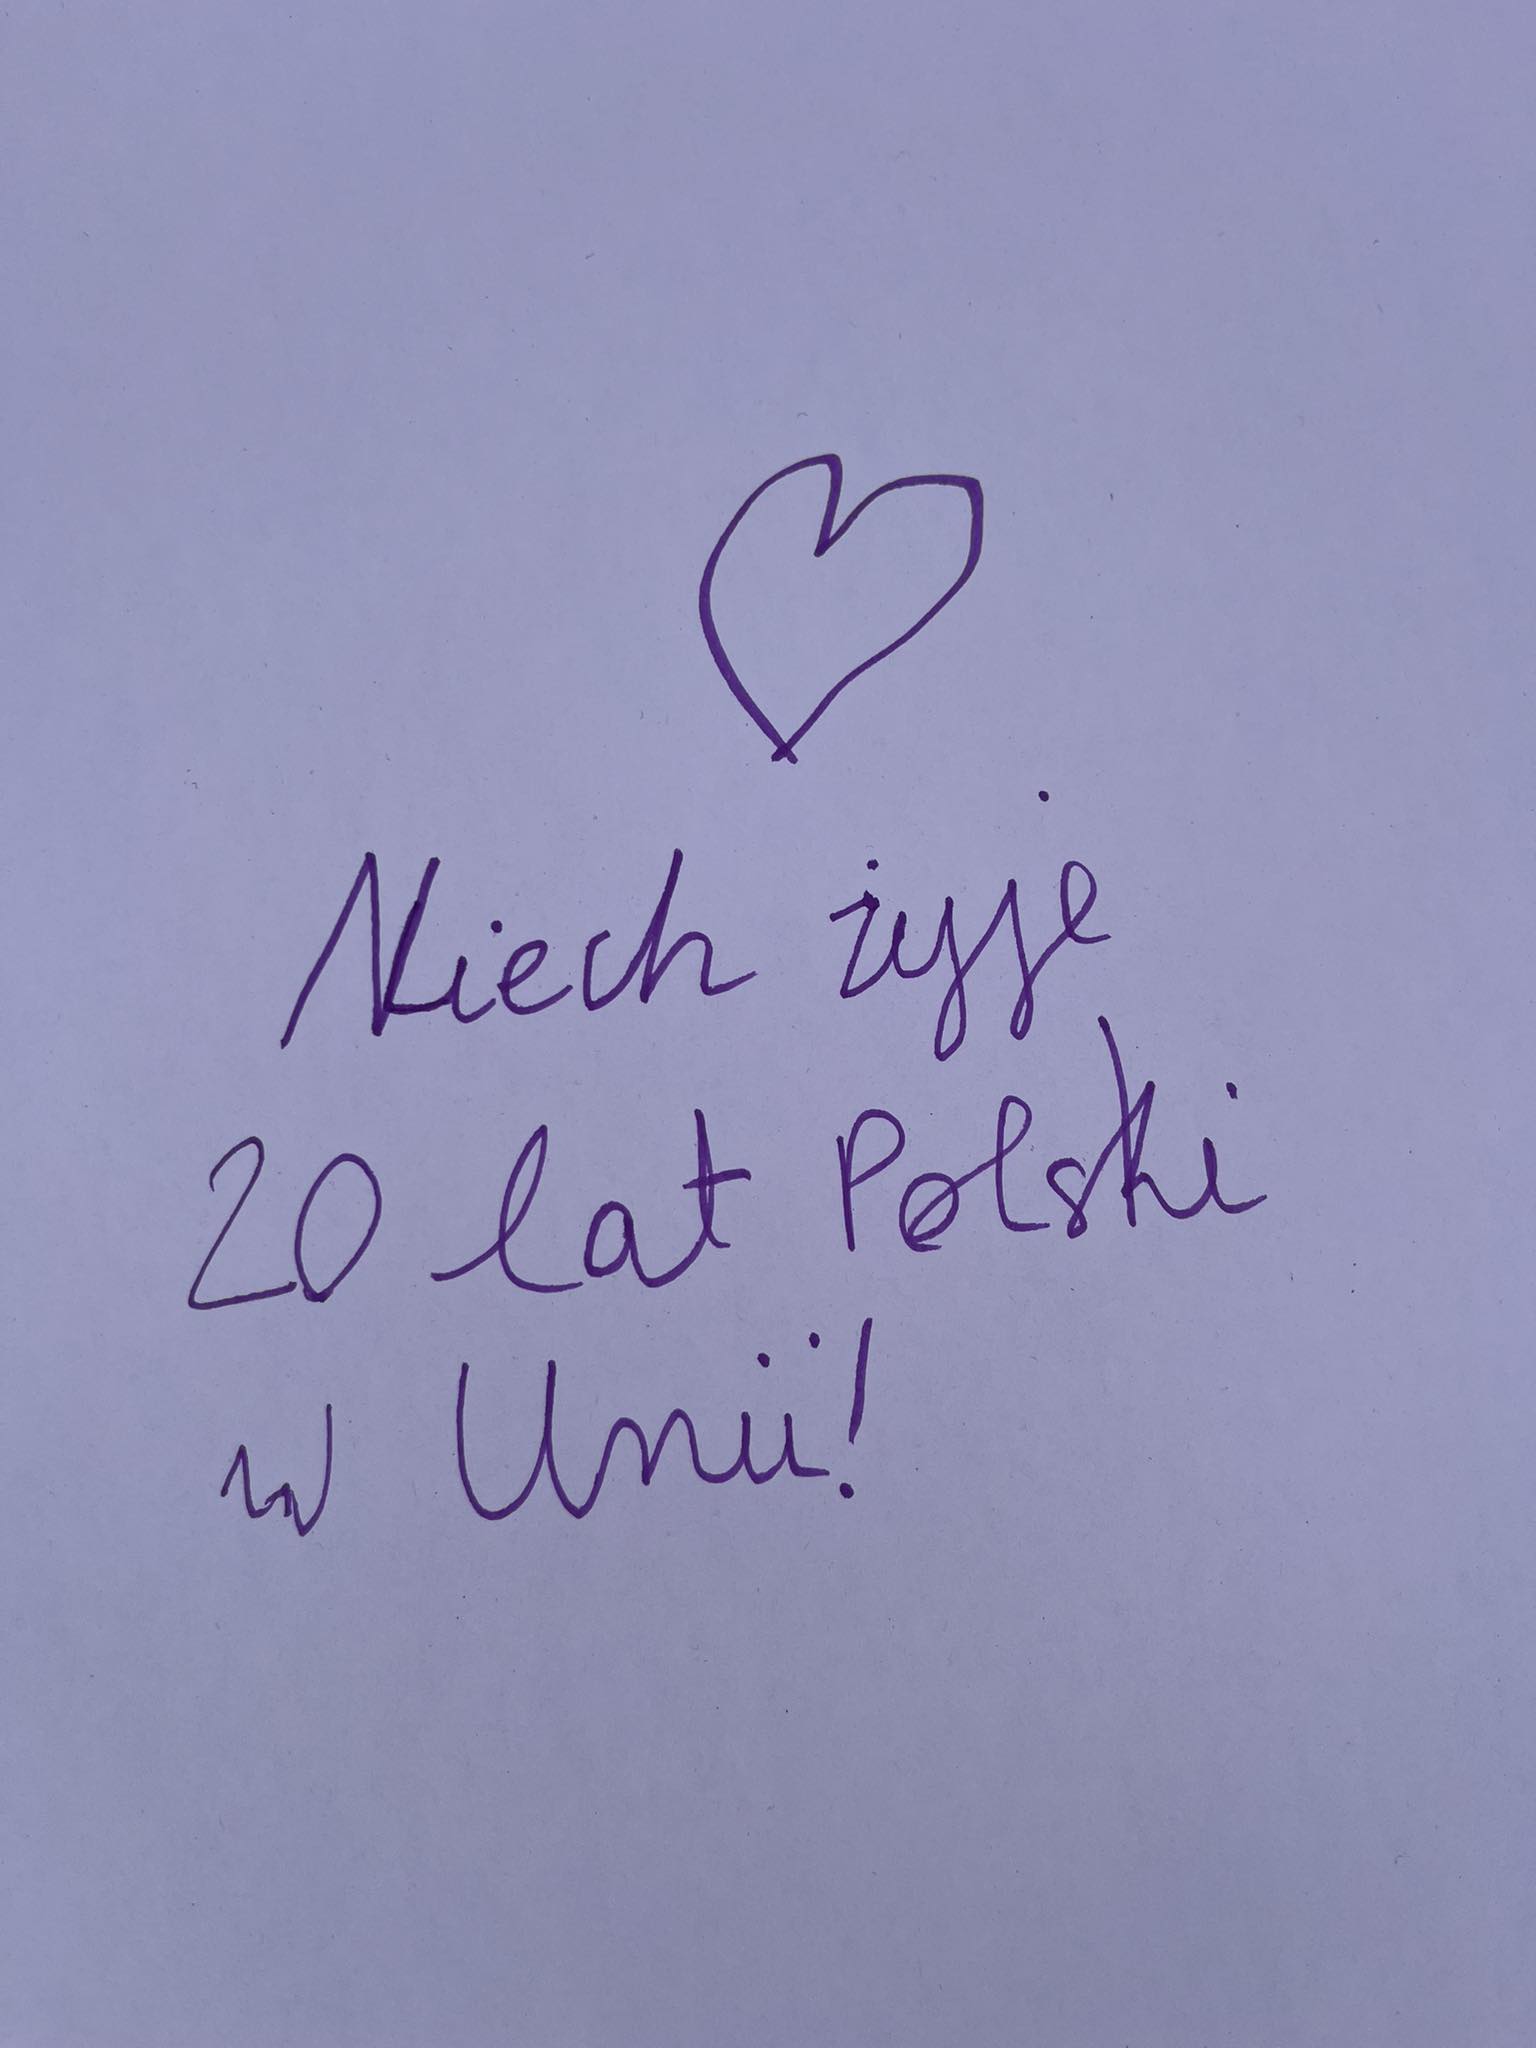 Niech żyje
20 lat Polski
w Unii!